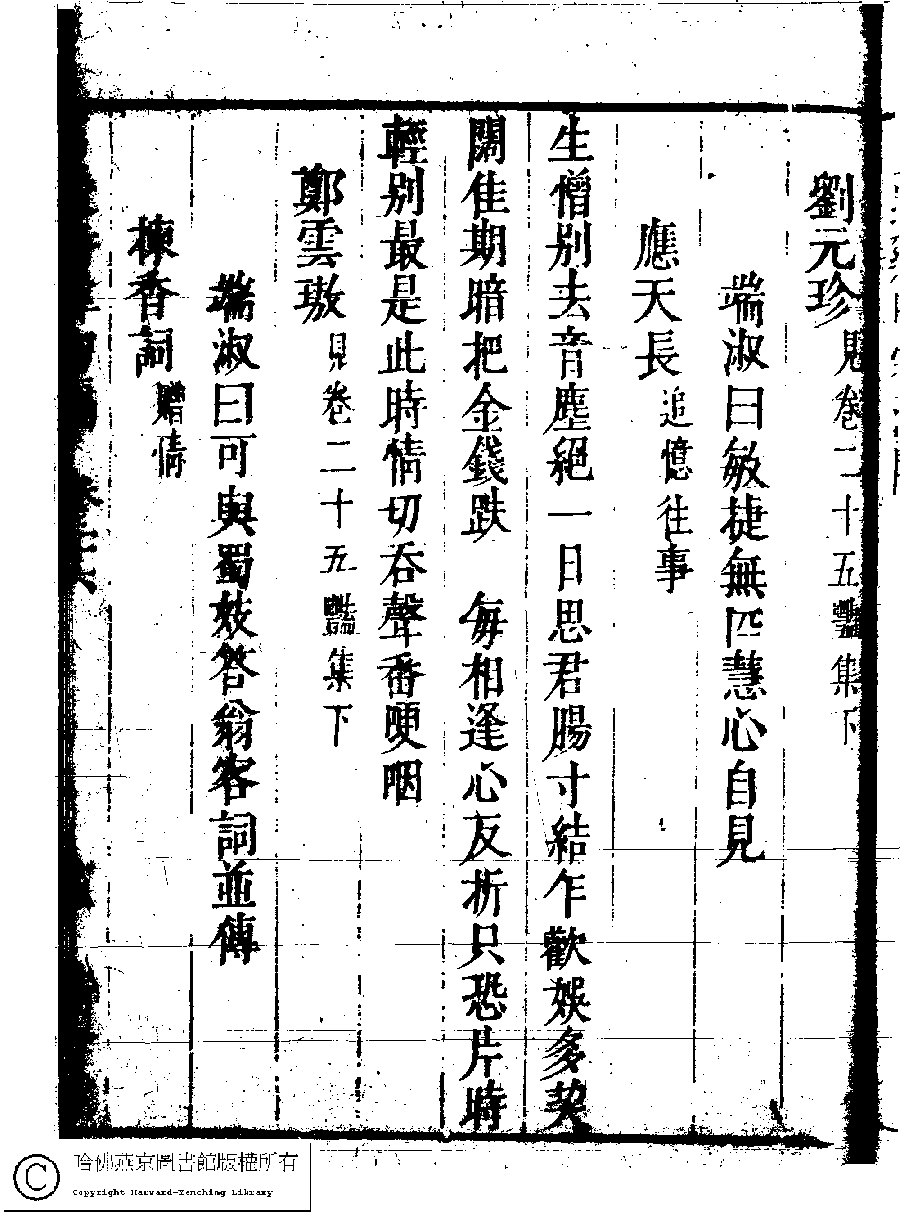 劉元珍 見卷二十五豔集下
端淑曰敏捷無匹慧心自見
應天長 追憶往事
生憎別去音塵絕一日思君腸寸結乍歡娛多契
闊佳期暗把金錢跌　每相逢心反折只恐片時
輕別最是此時情切吞聲番哽咽
鄭雲璈 見卷二十五豔集下
端淑曰可與蜀妓答翁客詞並傳
楝香詞 贈情
哈佛燕京圖書館版權所有
Copyright Harvard-Yenching Library